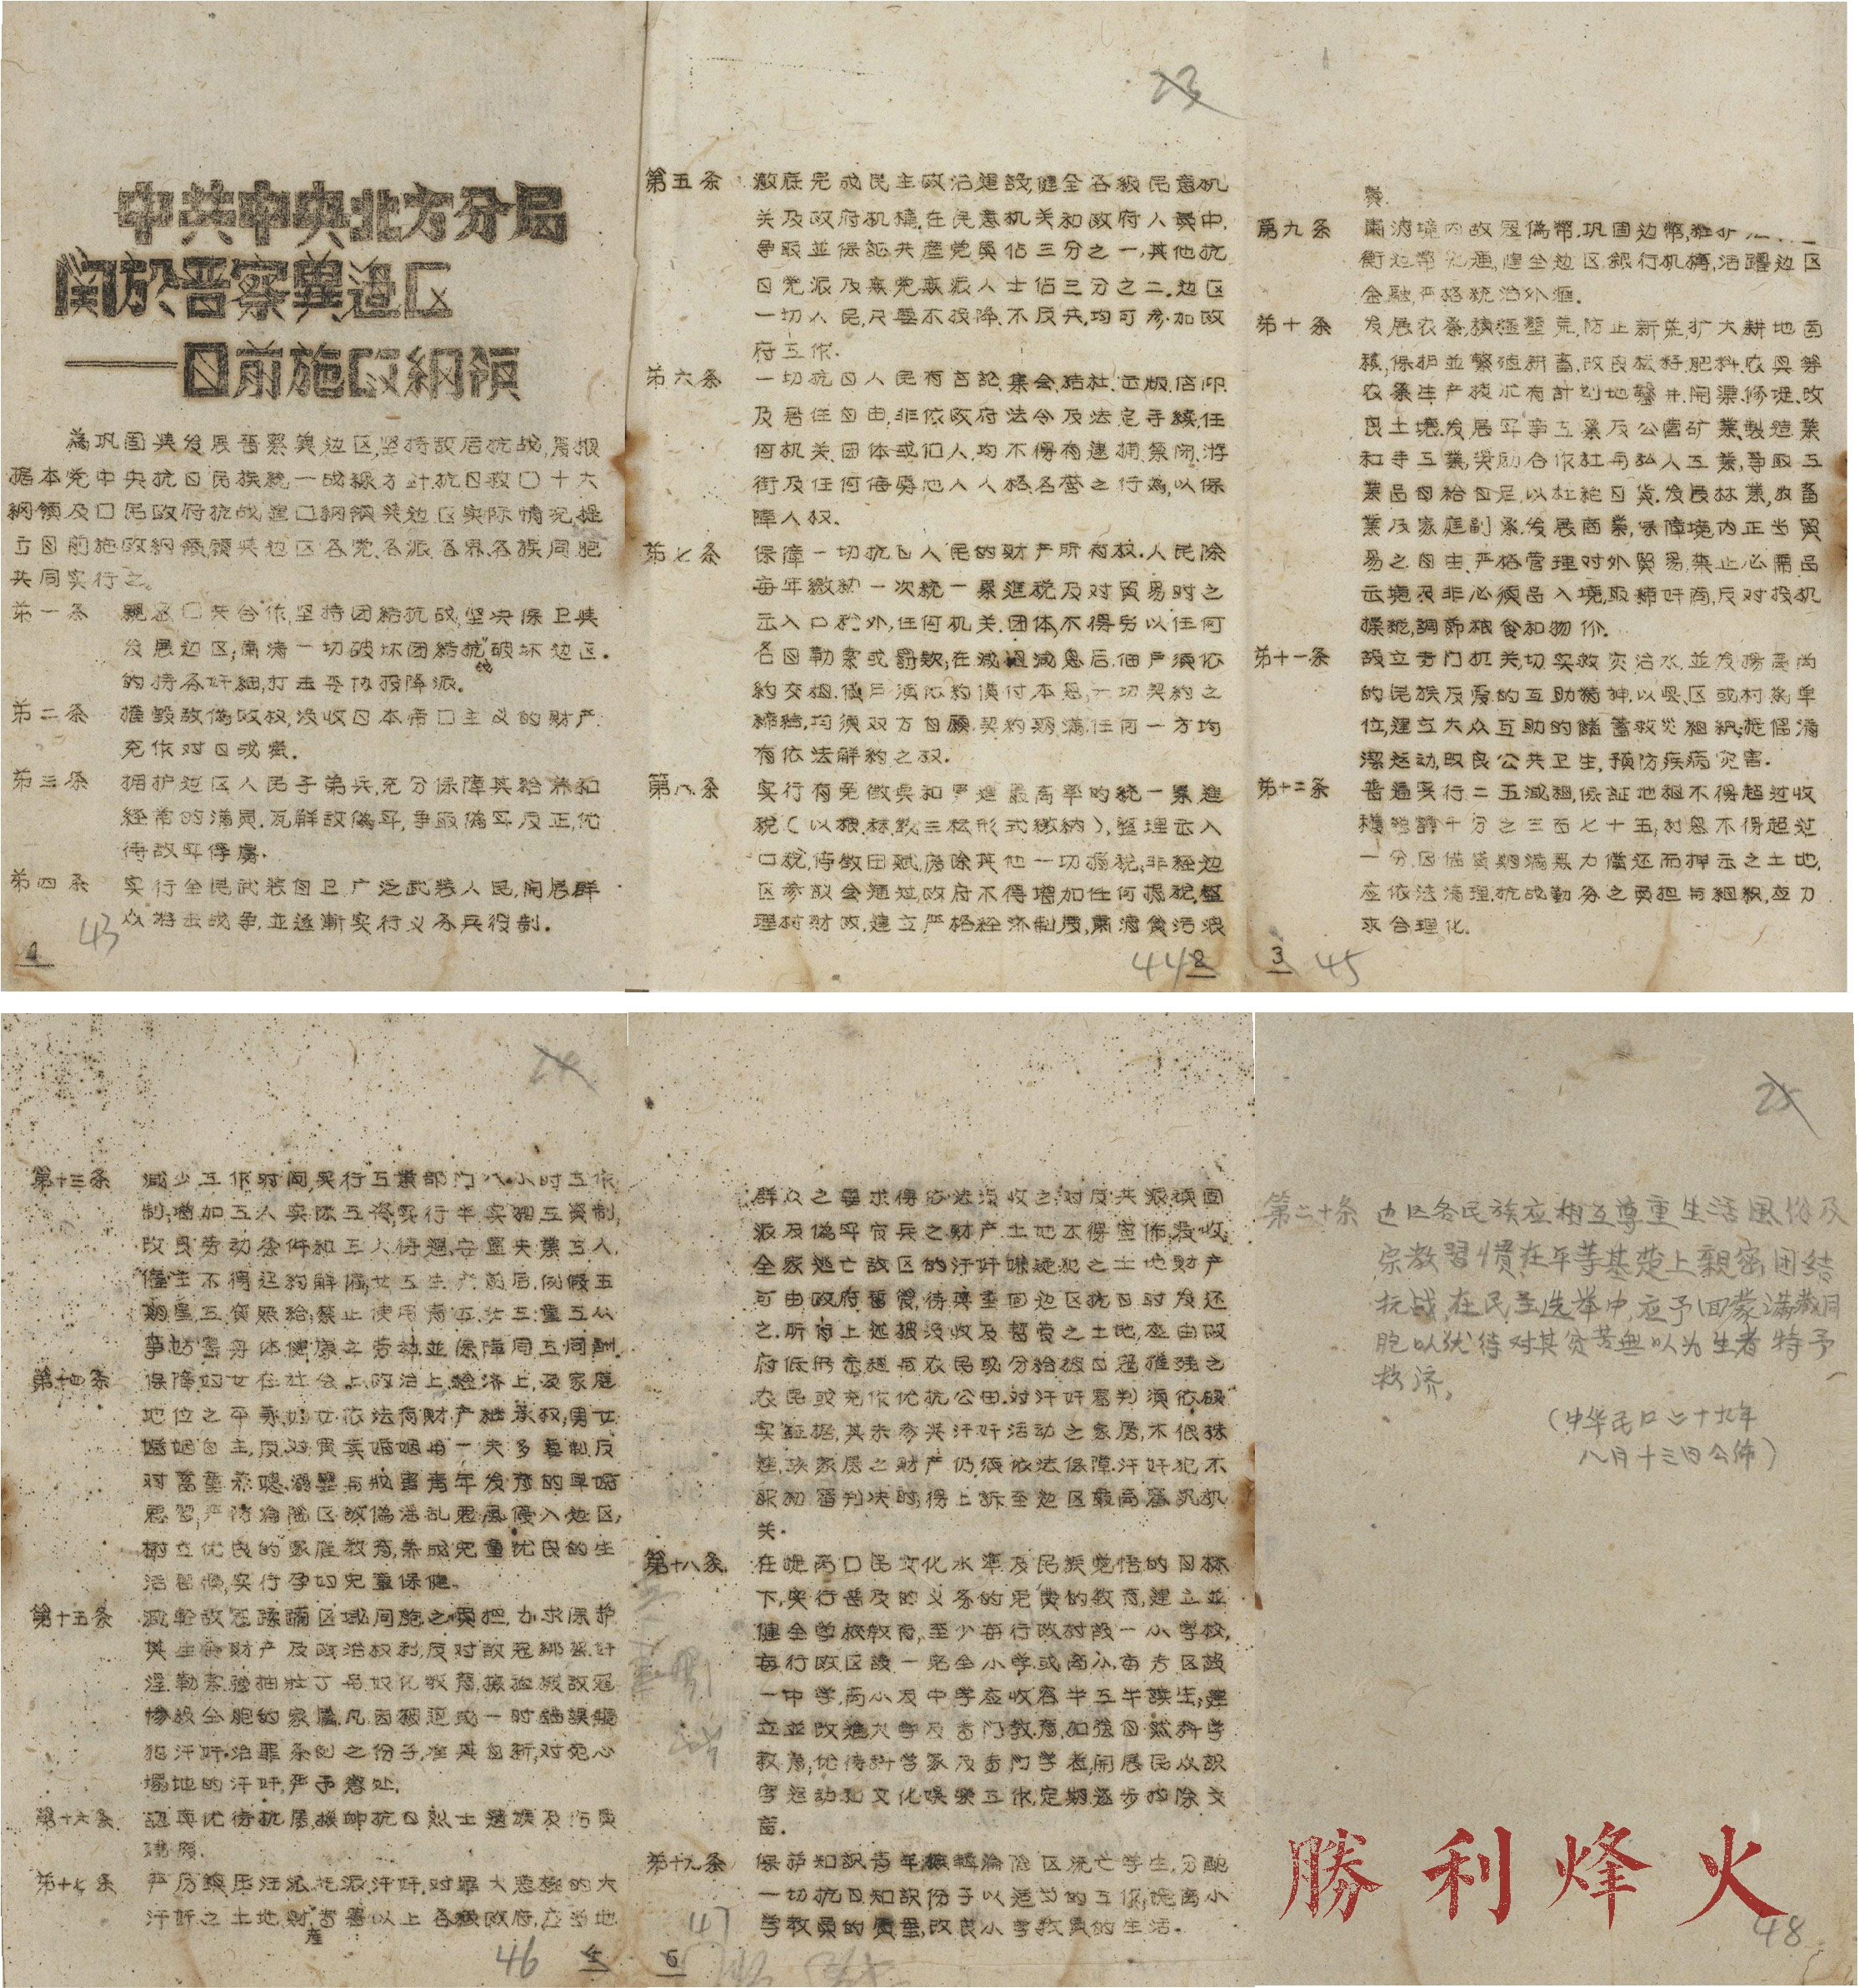 中共中央北方分局
関於晋察冀边区
——目前施政綱領
為巩固与发展晋察冀边区,坚持敌后抗战,爰根
据本党中央抗日民族統一战線方針抗日救囗十大
綱領及囗民政府抗战建囗綱領与边区实际情况,提
立目前施政綱領,願与边区各党、各派、各界、各族同胞
共同实行之。
第一条 親密囗共合作,坚持团結抗战,坚决保卫与
发展边区;肅清一切破坏团結抗战破坏边区
的特务奸細,打击妥协投降派。
第二条 摧毁敌偽政权,没收日本帝囗主义的财产
充作对日战费。
第三条 拥护边区人民子弟兵,充分保障其給养和
経常的满员,瓦解敌偽军,争取偽军反正,优
待敌军俘虜.
第四条 实行全民武装自卫,广泛武装人民,開展群
众游击战争,並逐漸实行义务兵役制.
43
1
23
第五条 澈底完成民主政治建設,健全各級民意机
关及政府机構,在民意机关和政府人员中,
争取並保証共産党员佔三分之一,其他抗
日党派及無党無派人士佔三分之二.边区
一切人民,只要不投降、不反共,均可参加政
府工作.
第六条 一切抗日人民有言論、集会、結社、出版、信仰
及居住自由,非依政府法令及法定手續,任
何机关、团体或個人,均不得有逮捕、禁闭、游
街及任何侮辱他人人格名誉之行為,以保
障人权.
第七条 保障一切抗日人民的财产所有权.人民除
每年繳納一次統一累進税及对貿易时之
出入口税外,任何机关、团体,不得另以任何
名目勒索或罰款;在减租减息后,佃户須依
約交租,債户須依約償付本息;一切契約之
締結,均須双方自願,契約期满,任何一方均
有依法解約之权.
第八条 实行有免徵点和累進最高率的統一累進
税(以粮、秣、錢三种形式繳納),整理出入
口税,停徵田赋,廃除其他一切捐税,非経边
区参議会通过,政府不得增加任何捐税,整
理村财政,建立严格経济制度,肅清貪污浪
44 2
費.
第九条
衡边幣比值,健全边区銀行机構,活躍边区
金融,严格統治外滙.
第十条 发展农業,積極墾荒,防止新荒,扩大耕地面
積,保护並繁殖耕畜,改良种籽、肥料、农具等
农業生产技术,有計划地鑿井、開渠、修堤、改
良土壤,发展军事工業及公营矿業、製造業
和手工業,奖励合作社与私人工業,争取工
業品自給自足,以杜絶日貨.发展林業、牧畜
業及家庭副業.发展商業,保障境内正当貿
易之自由.严格管理对外貿易,禁止必需品
出境及非必須品入境,取締奸商,反对投机
操縱,調節粮食和物价.
第十一条 設立专门机关,切实救灾治水,並发揚高尚
的民族友爱的互助精神,以县、区或村為单
位,建立大众互助的儲蓄救灾組織;提倡清
潔运动,改良公共卫生,預防疾病灾害.
第十二条 普遍实行二五减租,保証地租不得超过收
穫総額千分之三百七十五,利息不得超过
一分,因借貸期满無力償还而押出之土地,
应依法清理.抗战勤务之负担与組織,应力
求合理化.
3 45
24
第十三条 减少工作时间,实行工業部门八小时工作
制,增加工人实际工資,实行半实物工資制,
改良劳动条件和工人待遇,安置失業工人,
僱主不得违約解僱,女工生产前后,例假五
期里工資照給.禁止使用青工女工童工从
事妨害身体健康之劳动,並保障同工同酬.
第十四条 保障妇女在社会上、政治上、経济上,及家庭
地位之平等,妇女依法有财产継承权,男女
婚姻自主,反对買卖婚姻与一夫多妻制,反
对蓄童养媳、溺嬰与戕害青年发育的早婚
惡習,严防淪陷区敌偽淫乱惡風侵入边区,
树立优良的家庭教育,养成児童优良的生
活習慣,实行孕妇児童保健.
第十五条 减輕敌冠蹂躪区域同胞之负担,力求保护
其生命财产及政治权利,反对敌冠綁架、奸
淫、勒索、強抽壮丁与奴化教育,
犯汗奸治罪条例之份子,准其自新,对死心
塌地的汗奸,严予惩处.
第十六条 認真优待抗属,撫卹抗日烈士遺族及伤员
第十七条 严厉鎮压汪派托派汗奸.对罪大惡極的大
汗奸之土地财産,专署以上各級政府,应当地
46
群众之要求得依法没收之,对反共派頑固
派及偽军官兵之财产土地不得宣佈没收,
全家逃亡敌区的汗奸嫌疑犯之土地财产
可由政府暫管,待其重回边区抗日时发还
之.所有上述被没收及暫管之土地,应由政
府低价出租与农民或分給被日冠摧残之
农民或充作优抗公田.对汗奸審判須依碻
实証据,其未参与汗奸活动之家属,不得株
連,該家属之财产仍須依法保障.汗奸犯不
服初審判决时,得上訴至边区最高審訊机
关.
第十八条 在提高囗民文化水準及民族觉悟的目标
下,实行普及的义务的免费的教育,建立並
健全学校教育,至少每行政村設一小学校,
每行政区設一完全小学或高小,每专区設
一中学,高小及中学应收容半工半讀生;建
立並改進大学及专门教育,加強自然科学
教育,优待科学家及专门学者,開展民众識
字运动和文化娛樂工作,定期逐步掃除文
盲.
第十九条 保护知識青年,撫輯淪陷区流亡学生,分配
一切抗日知識份子以适当的工作,提高小
学教员的質量,改良小学教员的生活.
47
6
25
第二十条 边区各民族应相互尊重生活風俗及
宗教習慣,在平等基楚上親密团结
抗战,在民主选举中,应予回蒙满藏同
胞以优待对其贫苦無以为生者特予
救济。
(中华民囗二十九年
八月十三日公佈)
勝利烽火
48